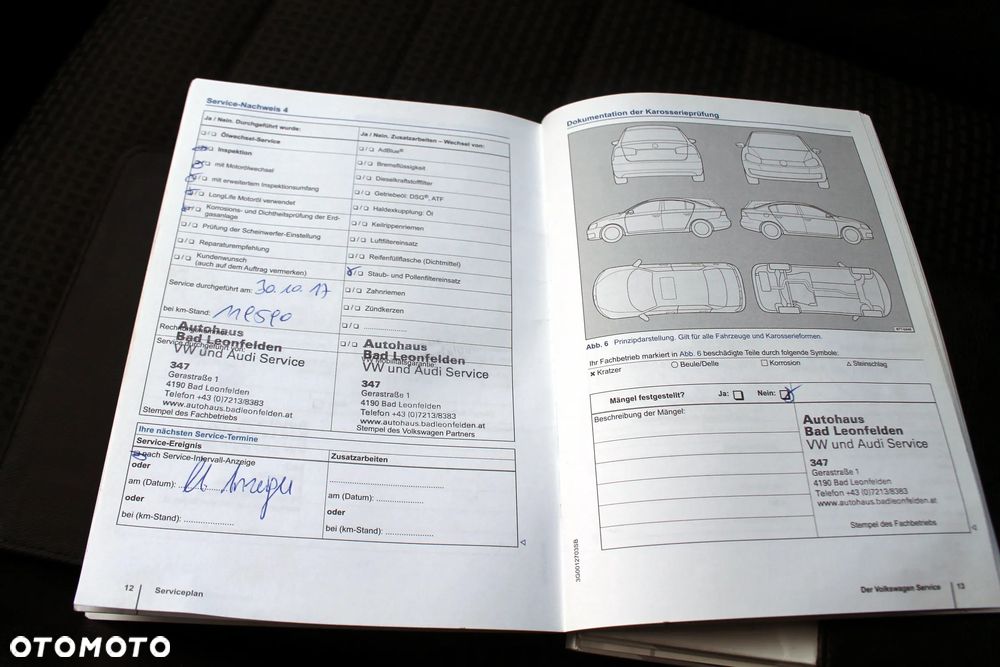 Service-Nachweis 4
Ja / Nein. Durchgeführt wurde:
❑ / ❑ Ölwechsel-Service
Inspektion
mit Motorölwechsel
mit erweitertem Inspektionsumfang
LongLife Motoröl verwendet
Korrosions- und Dichtheitsprüfung der Erd-
gasanlage
❑ / ❑ Prüfung der Scheinwerfer-Einstellung
❑ / ❑ Reparaturempfehlung
❑ / ❑ Kundenwunsch
(auch auf dem Auftrag vermerken)
Service durchgeführt am: 30.10.17
bei km-Stand:
Service durchgeführt von:
Autohaus
Bad Leonfelden
VW und Audi Service
347
Gerastraße 1
4190 Bad Leonfelden
Telefon +43 (0)7213/8383
www.autohaus.badleonfelden.at
Stempel des Fachbetriebs
Ja / Nein. Zusatzarbeiten – Wechsel von:
❑ / ❑ AdBlue®
❑ / ❑ Bremsflüssigkeit
❑ / ❑ Dieselkraftstofffilter
❑ / ❑ Getriebeöl: DSG®, ATF
❑ / ❑ Haldexkupplung: Öl
❑ / ❑ Keilrippenriemen
❑ / ❑ Luftfiltereinsatz
❑ / ❑ Reifenfüllflasche (Dichtmittel)
❑ / ❑ Staub- und Pollenfiltereinsatz
❑ / ❑ Zahnriemen
❑ / ❑ Zündkerzen
❑ / ❑ ....................
❑ / ❑
Mobilitätsgarantie
Autohaus
Bad Leonfelden
VW und Audi Service
347
Gerastraße 1
4190 Bad Leonfelden
Telefon +43 (0)7213/8383
www.autohaus.badleonfelden.at
Stempel des Volkswagen Partners
Ihre nächsten Service-Termine
Service-Ereignis
nach Service-Intervall-Anzeige
oder
am (Datum):
oder
bei (km-Stand): ....................
Zusatzarbeiten
....................
am (Datum): ....................
oder
bei (km-Stand): ....................
12 Serviceplan
Dokumentation der Karosserieprüfung
Abb. 6 Prinzipdarstellung. Gilt für alle Fahrzeuge und Karosserieformen.
Ihr Fachbetrieb markiert in Abb. 6 beschädigte Teile durch folgende Symbole:
× Kratzer ○ Beule/Delle □ Korrosion △ Steinschlag
Mängel festgestellt? Ja: ❑ Nein: ❑
Beschreibung der Mängel:
Autohaus
Bad Leonfelden
VW und Audi Service
347
Gerastraße 1
4190 Bad Leonfelden
Telefon +43 (0)7213/8383
www.autohaus.badleonfelden.at
Stempel des Fachbetriebs
3G0012703SB
Der Volkswagen Service 13
OTOMOTO